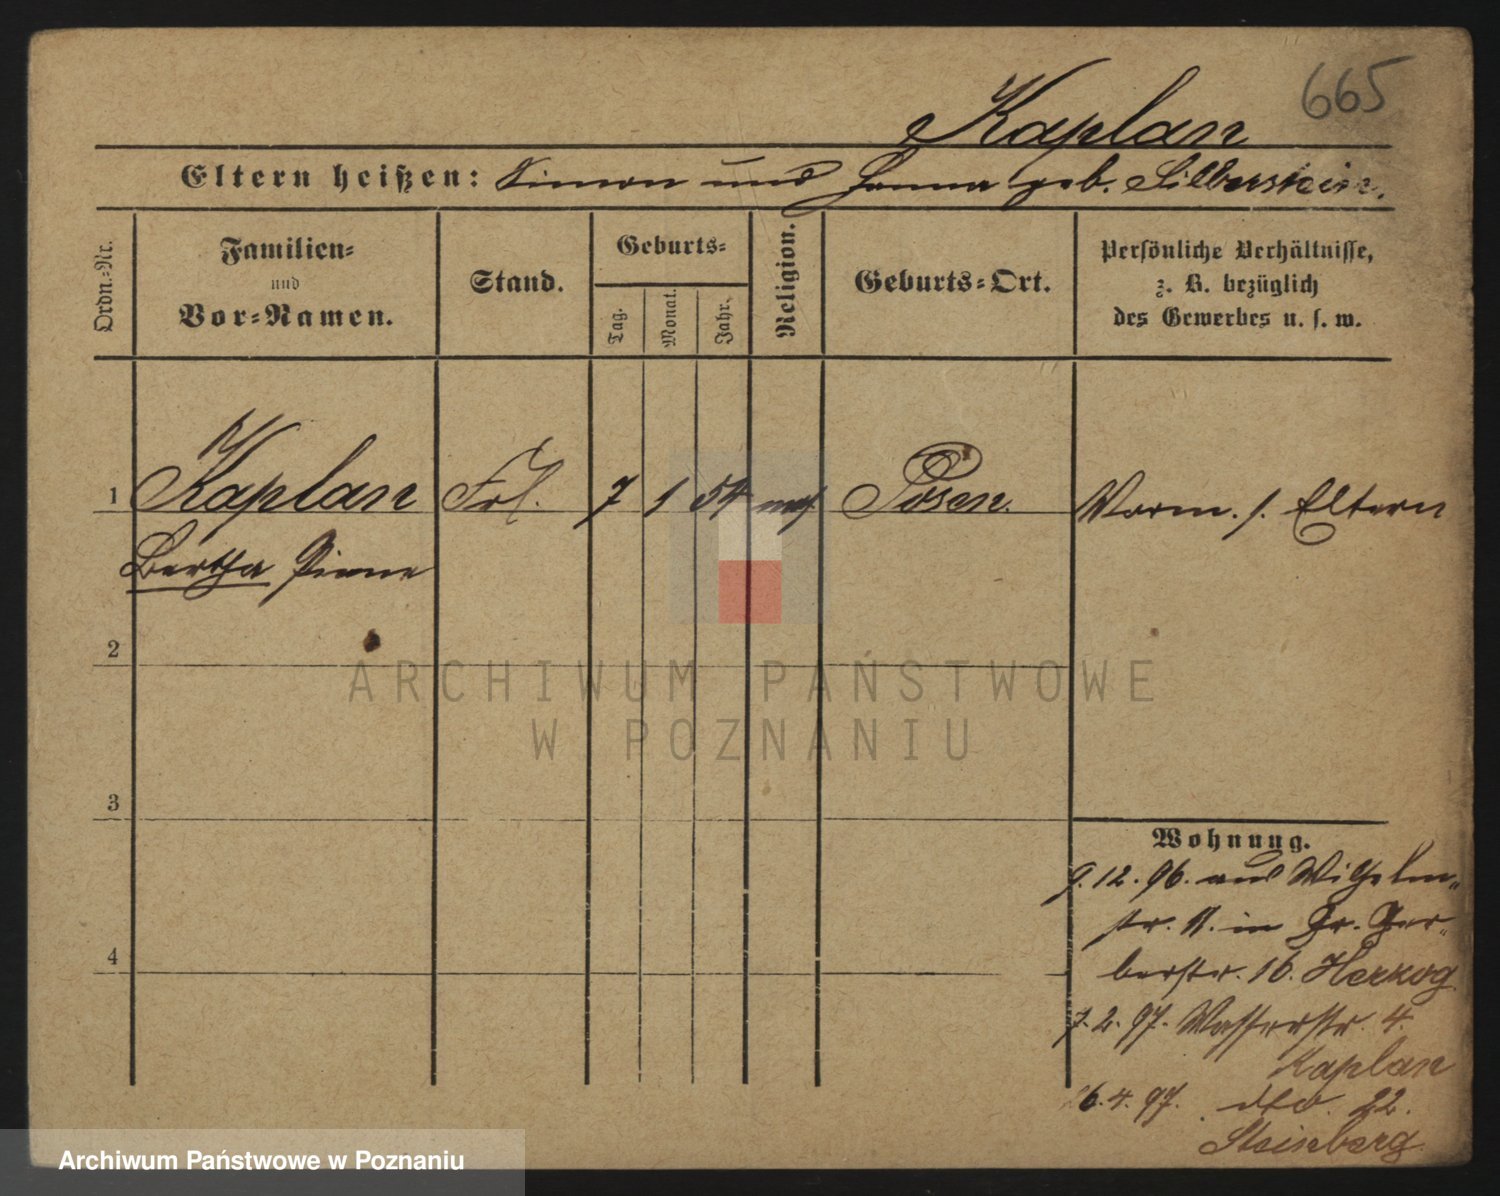 665
Kaplan
Eltern heißen: Simon und Hanna geb. Silberstein.
Ordn.-Nr.
Familien- und Vor-Namen.
Stand.
Geburts-
Tag.
Monat.
Jahr.
Religion.
Geburts-Ort.
Persönliche Verhältnisse,
z. B. bezüglich
des Gewerbes u. s. w.
1 Kaplan Frl. 7 1 54 mos. Posen. Vorm. s. Eltern
Bertha
2
3
4
Wohnung.
9.12.96. aus Wilhelm-
str. 11. in Gr. Ger-
berstr. 16. Herzog
7.2.97. Wasserstr. 4.
Kaplan
6.4.97. dto. 22.
Steinberg
ARCHIWUM PAŃSTWOWE
W POZNANIU
Archiwum Państwowe w Poznaniu